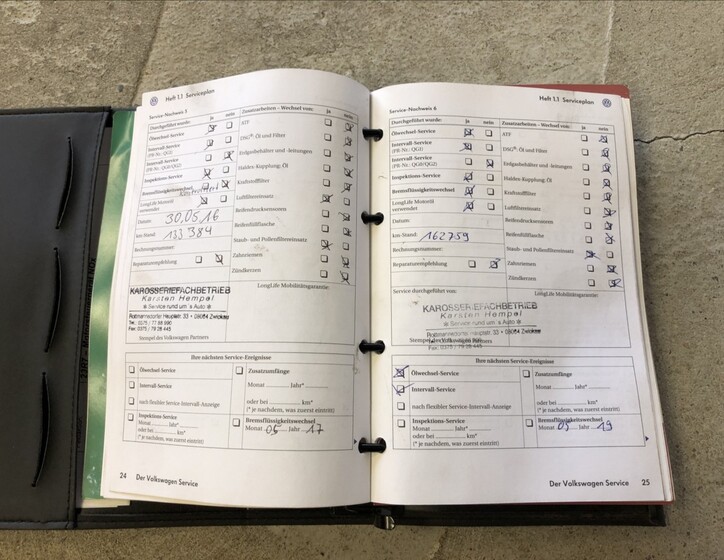 Heft 1.1 Serviceplan
Service-Nachweis 5
Durchgeführt wurde: ja nein
Ölwechsel-Service
Intervall-Service
(PR Nr.: QG1)
Intervall-Service
(PR Nr.: QG0/QG2)
Inspektions-Service
Bremsflüssigkeitswechsel
LongLife Motoröl
verwendet
Datum: 30.05.16
km-Stand: 133 384
Rechnungsnummer:
Reparaturempfehlung
Zusatzarbeiten - Wechsel von: ja nein
ATF
DSG®-Öl und Filter
Erdgasbehälter und -leitungen
Haldex-Kupplung; Öl
Kraftstofffilter
Luftfiltereinsatz
Reifendrucksensoren
Reifenfüllflasche
Staub- und Pollenfiltereinsatz
Zahnriemen
Zündkerzen
LongLife Mobilitätsgarantie:
KAROSSERIEFACHBETRIEB
Karsten Hempel
Service rund um´s Auto
Rottmannsdorfer Hauptstr. 33 • 08064 Zwickau
Stempel des Volkswagen Partners
Ihre nächsten Service-Ereignisse
Ölwechsel-Service
Intervall-Service
nach flexibler Service-Intervall-Anzeige
Zusatzumfänge
Monat Jahr*
oder bei km*
(* je nachdem, was zuerst eintritt)
Inspektions-Service
Monat Jahr*
oder bei km*
(* je nachdem, was zuerst eintritt)
Bremsflüssigkeitswechsel
Monat 05 Jahr 17
24 Der Volkswagen Service
Heft 1.1 Serviceplan
Service-Nachweis 6
Durchgeführt wurde: ja nein
Ölwechsel-Service
Intervall-Service
(PR Nr.: QG1)
Intervall-Service
(PR Nr.: QG0/QG2)
Inspektions-Service
Bremsflüssigkeitswechsel
LongLife Motoröl
verwendet
Datum:
km-Stand: 162759
Rechnungsnummer:
Reparaturempfehlung
Zusatzarbeiten - Wechsel von: ja nein
ATF
DSG®-Öl und Filter
Erdgasbehälter und -leitungen
Haldex-Kupplung; Öl
Kraftstofffilter
Luftfiltereinsatz
Reifendrucksensoren
Reifenfüllflasche
Staub- und Pollenfiltereinsatz
Zahnriemen
Zündkerzen
Service durchgeführt von:
LongLife Mobilitätsgarantie:
KAROSSERIEFACHBETRIEB
Karsten Hempel
Service rund um´s Auto
Rottmannsdorfer Hauptstr. 33 • 08064 Zwickau
Stempel des Volkswagen Partners
Ihre nächsten Service-Ereignisse
Ölwechsel-Service
Intervall-Service
nach flexibler Service-Intervall-Anzeige
Zusatzumfänge
Monat Jahr*
oder bei km*
(* je nachdem, was zuerst eintritt)
Inspektions-Service
Monat Jahr*
oder bei km*
(* je nachdem, was zuerst eintritt)
Bremsflüssigkeitswechsel
Monat 05 Jahr 19
Der Volkswagen Service 25